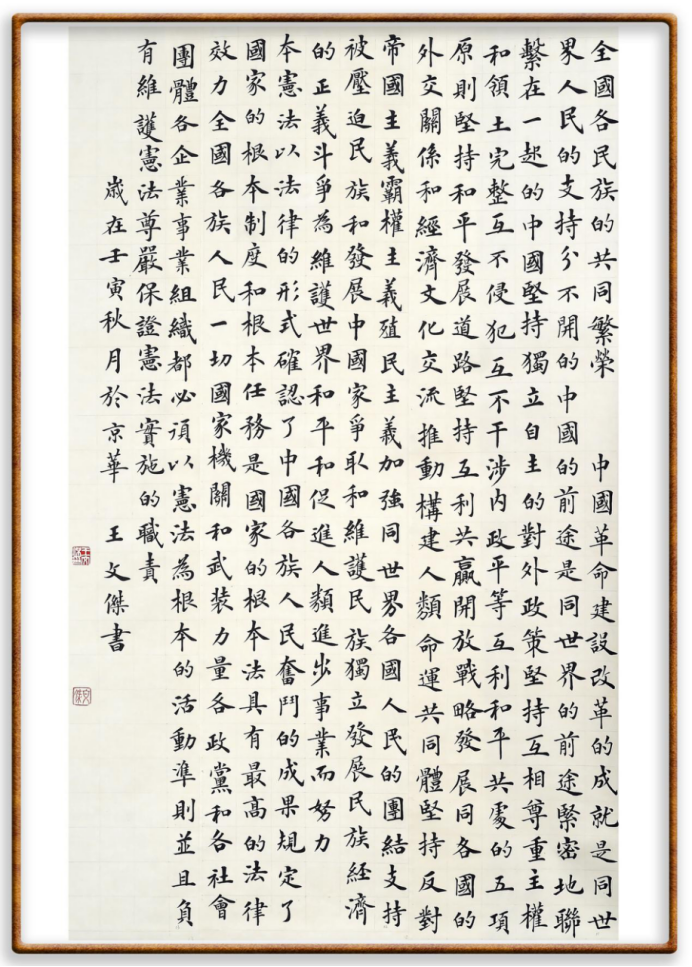 全國各民族的共同繁榮 中國革命建設改革的成就是同世
界人民的支持分不開的中國的前途是同世界的前途緊密地聯
繫在一起的中國堅持獨立自主的對外政策堅持互相尊重主權
和領土完整互不侵犯互不干涉內政平等互利和平共處的五項
原則堅持和平發展道路堅持互利共贏開放戰略發展同各國的
外交關係和經濟文化交流推動構建人類命運共同體堅持反對
帝國主義霸權主義殖民主義加強同世界各國人民的團結支持
被壓迫民族和發展中國家爭取和維護民族獨立發展民族經濟
的正義斗爭為維護世界和平和促進人類進步事業而努力
本憲法以法律的形式確認了中國各族人民奮鬥的成果規定了
國家的根本制度和根本任務是國家的根本法具有最高的法律
效力全國各族人民一切國家機關和武裝力量各政黨和各社會
團體各企業事業組織都必須以憲法為根本的活動準則並且負
有維護憲法尊嚴保證憲法實施的職責
歲在壬寅秋月於京華 王文傑書